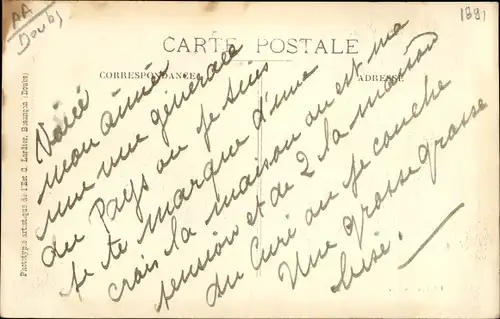 AA
Doubs
1891
CARTE POSTALE
CORRESPONDANCE
ADRESSE
Phototypie artistique de l'Est C. Lardier, Besançon (Doubs)
Voici
mon aimée
une vue générale
du Pays ou je suis
je te marque d'une
crois la maison ou est ma
pension et de 2 la maison
du Curé ou je couche
Une grosse grosse
bise.